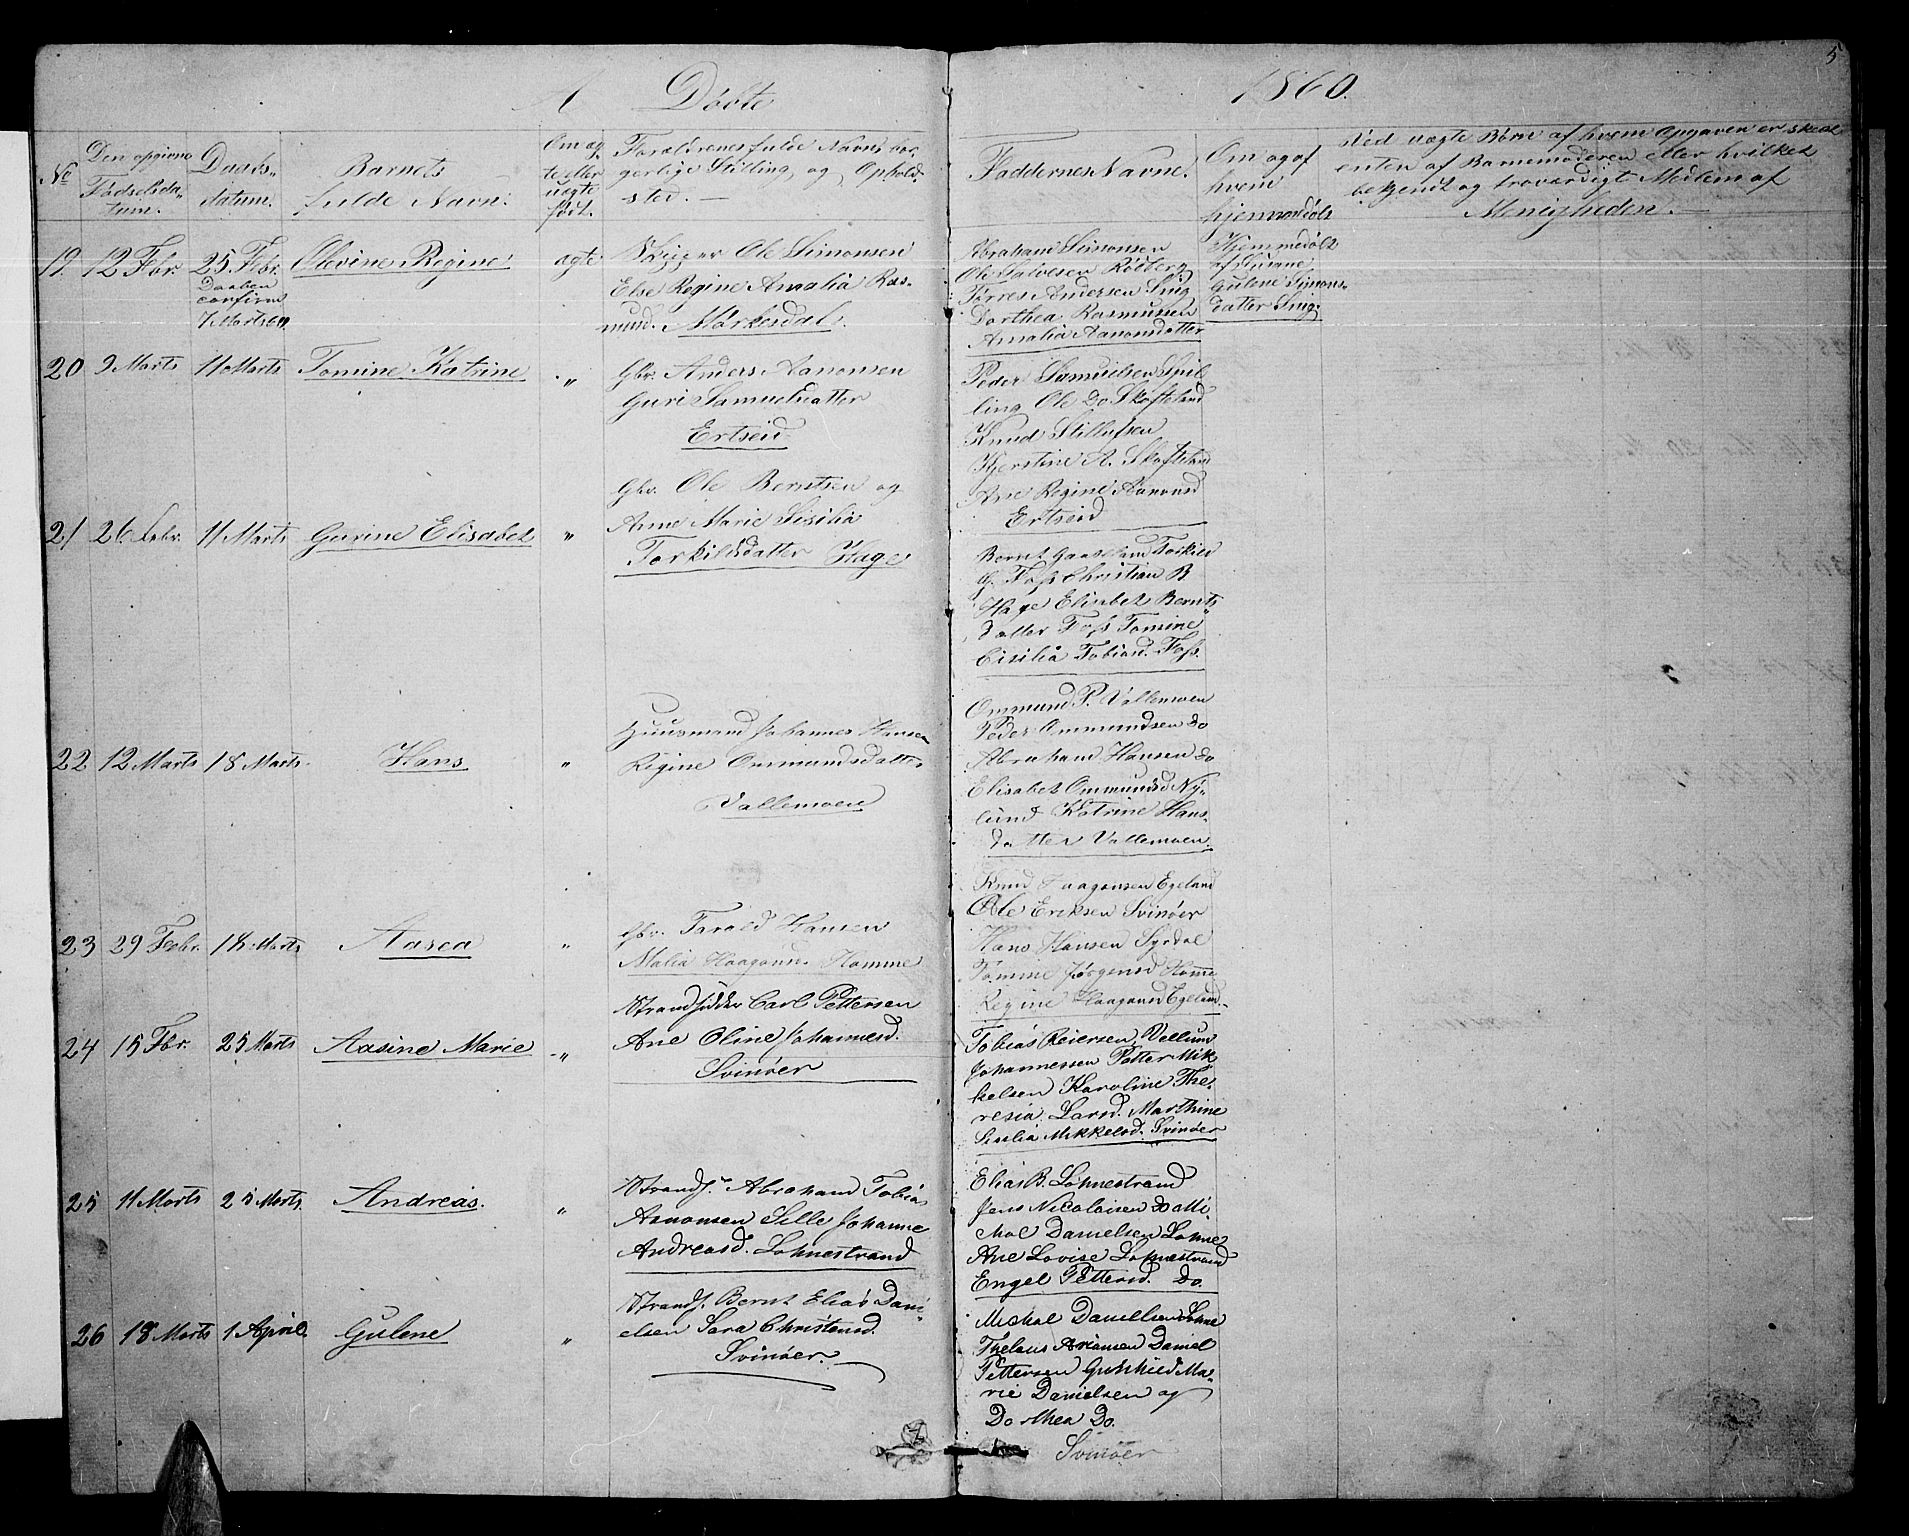 5
A Døbte 1860.
No
Den opgivne Fødselsdatum.
Daabsdatum.
Barnets fulde Navn.
Om ægte eller uægte født.
Forældrenes fulde Navne borgerlige Stilling og Opholdsted. —
Faddernes Navne.
Om og af hvem hjemmedøbt
Ved uægte Børn af hvem Opgaven er skeet
enten af Barnemoderen eller hvilket
bekjendt og troværdigt Medlem af
Menigheden. —
19. 12 Febr. 25 Febr. Olevine Regine ægte
Daaben
confirm
7 Marts 60
Skipper Ole Simonsen
Else Regine Amalia Ras-
mund. Mørkesdal.
Abrahand Simonsen
Ole Salvesen Rødberg
Torres Andersen Snig
Dorthea Rasmussen
Amalia Aanonsdatter
Hjemmedøbt
af Susane
Gulene Simons-
datter Snig
20 9 Marts 11 Marts Tomine Katrine "
Gbr. Anders Aanonsen
Guri Samuelsdatter
Ertseid
Peder Samuelsen Spil-
ling Ole Do Skofteland
Knud Stillufsen
Kjerstine A. Skofteland
Ane Regine Aanonsd
Ertseid
21 26 Febr. 11 Marts Gurine Elisabet "
Gbr. Ole Berntsen og
Anne Marie Sisilia
Torkildsdatter Hage
Bernt Gaaseland Torkild
G. Foss Christian B
Hage Elisabet Bernts
datter Foss Tomine
Cisilia Tobiasd. Foss.
22 12 Marts 18 Marts. Hans "
Huusmand Johannes Hansen
Regine Ommundsdatter
Vallemoen
Ommund P. Vallemoen
Peder Ommundsen do
Abraham Hansen do
Elisabet Ommundsd Ny-
lund Katrine Hans-
datter Vallemoen.
23 29 Febr. 18 Marts Aasea "
Gbr. Tarald Hansen
Malia Haagonsd. Homme
Knud Haagonsen Egeland
Ole Eriksen Svinøer
Hans Hansen Syrdal
Tomine Jørgensd Home
Regine Haagonsd Egeland.
24 15 Fbr. 25 Marts Aasine Marie "
Strandsidder Carl Pettersen
Ane Oline Johannesd.
Svinøer
Tobias Reiersen Vellund
Johannessen Petter Mik
kelsen Karoline The-
resia Larsd. Marthine
Sisilia Mikkelsd. Svinøer
25 11 Marts 25 Marts. Andreas. "
Strands. Abrahand Tobias
Aanonsen Sille Johanne
Andreasd. Lohnestrand
Elias B. Lohnestrand
Jens Nicolaisen do Mi-
kal Danielsen Lohne
Ane Lovise Lohnestrand
Engel Pettersd. Do.
26 18 Marts 1 April. Gulene "
Strands. Bernt Elias Dani-
elsen Sara Christensd.
Svinøer.
Mickal Daniellsen Lohne
Daniel
Pettersen Gunhild Ma-
rie Danielsen og
Dorthea Do.
Svinøer